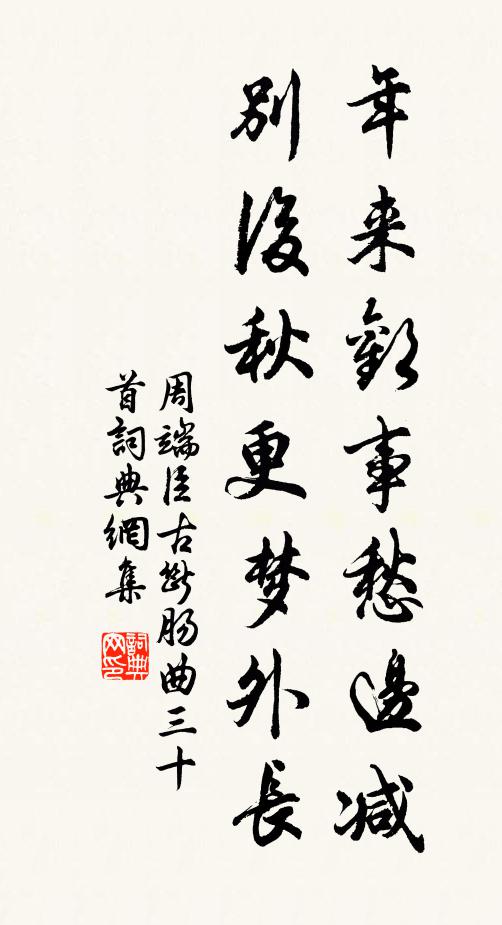 年来歡事愁邊减
别後秋更梦外長
周端臣古断肠曲三十
首詞典網集
詞典網印